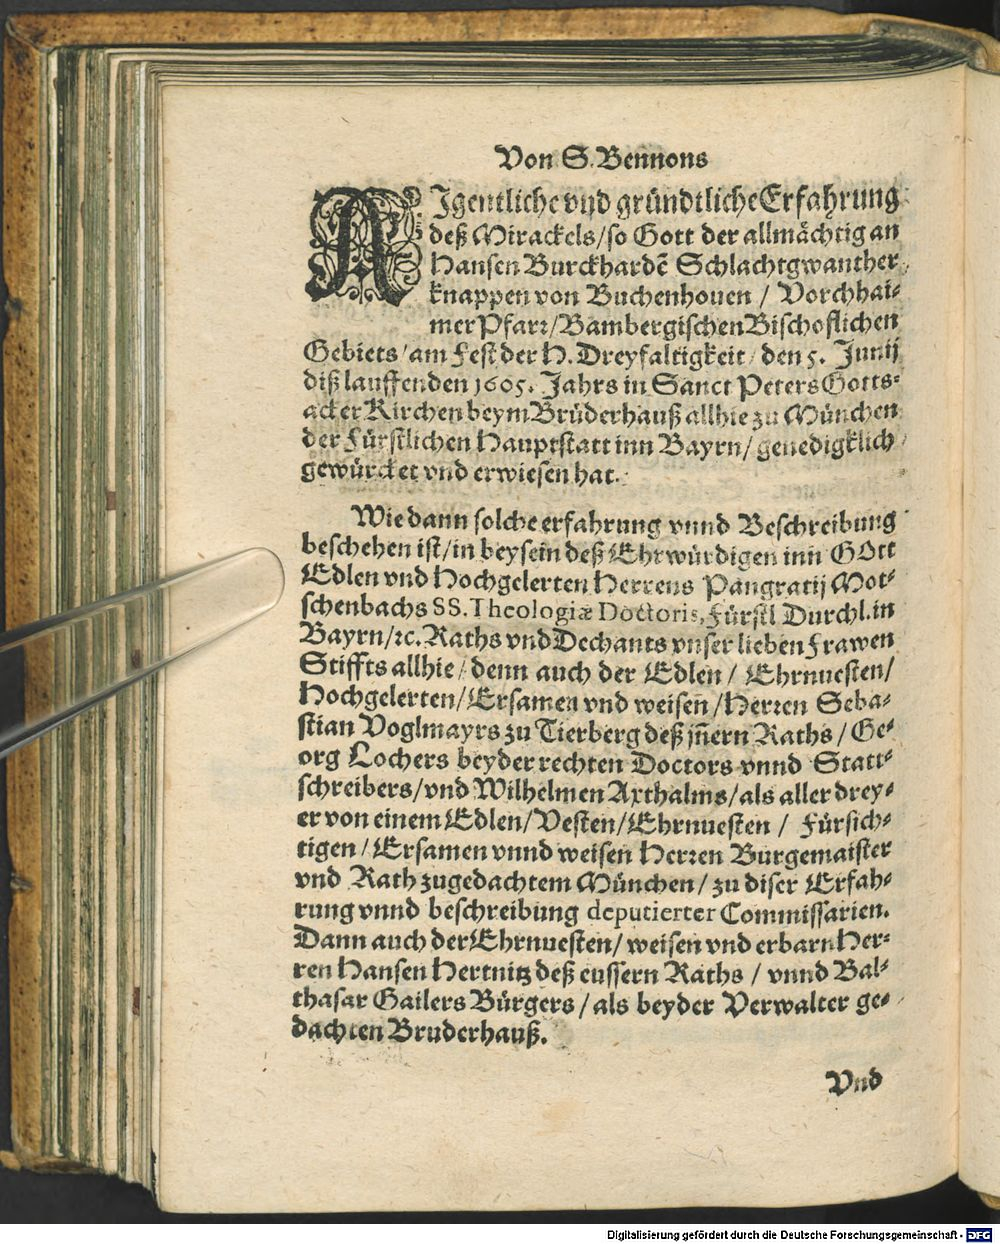 Von S. Bennons
AIgentliche vnd gründtliche Erfahrung
deß Mirackels/so Gott der allmächtig an
Hansen Burckhardẽ Schlachtgwanther
knappen von Buchenhouen / Vorchhai⸗
mer Pfarꝛ/Bambergischen Bischoflichen
Gebiets/am Fest der H. Dreyfaltigkeit/den 5. Junij
diß lauffenden 1605. Jahrs in Sanct Peters Gotts⸗
acker Kirchen beym Brüderhauß allhie zu München
der Fürstlichen Hauptstatt inn Bayrn/genedigklich
gewürcket vnd erwiesen hat.
Wie dann solche erfahrung vnnd Beschreibung
beschehen ist/in beysein deß Ehrwürdigen inn GOtt
Edlen vnd Hochgelerten Herrens Pangratij Mot⸗
schenbachs SS. Theologiæ Doctoris, Fürstl Durchl. in
Bayrn/ꝛc. Raths vnd Dechants vnser lieben Frawen
Stiffts allhie/denn auch der Edlen/ Ehrnuesten/
Hochgelerten/Ersamen vnd weisen/Herꝛen Seba⸗
stian Voglmayrs zu Tierberg deß jñern Raths/ Ge⸗
org Lochers beyder rechten Doctors vnnd Statt⸗
schreibers/vnd Wilhelmen Axthalms/als aller drey⸗
er von einem Edlen/Vesten/Ehrnuesten / Fürsich⸗
tigen/Ersamen vnnd weisen Herꝛen Burgemaister
vnd Rath zugedachtem München/zu diser Erfah⸗
rung vnnd beschreibung deputierter Commissarien.
Dann auch der Ehrnuesten/weisen vnd erbarn Her⸗
ren Hansen Hertnitz deß eussern Raths / vnnd Bal⸗
thasar Gailers Bürgers/als beyder Verwalter ge⸗
dachten Bruderhauß.
Vnd
Digitalisierung gefördert durch die Deutsche Forschungsgemeinschaft - DFG